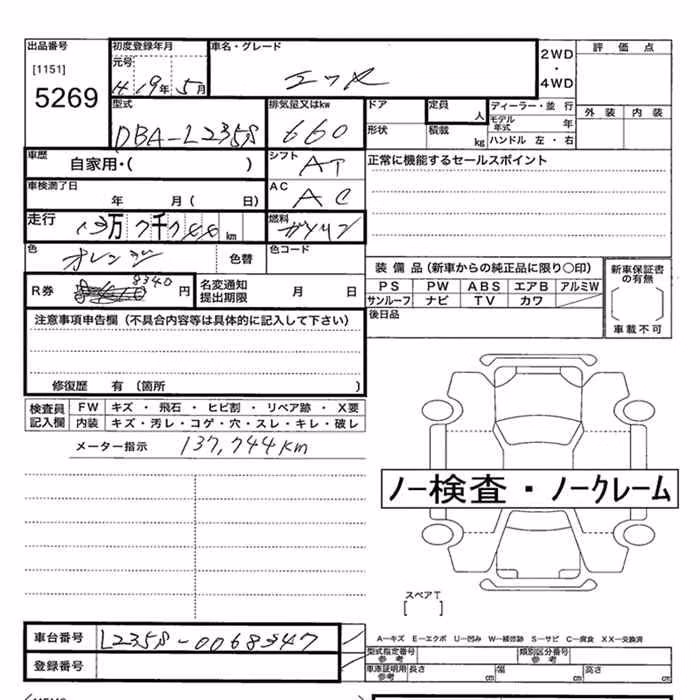 出品番号 初度登録年月 車名・グレード 2WD・4WD 評価点
[1151] 元号
5269 H 19年 5月 エッセ
型式 排気量又はkw ドア 定員 人 ディーラー・並行 外装 内装
DBA-L235S 660 形状 積載 kg モデル年式 年
ハンドル 左・右
車歴 自家用・( ) シフト AT 正常に機能するセールスポイント
車検満了日 年 月( 日) AC AC
走行 13万7千744km 燃料 ガソリン
色 オレンジ 色替 色コード
装備品(新車からの純正品に限り○印) 新車保証書の有無
R券 8340 円 名変通知提出期限 月 日 PS PW ABS エアB アルミW
サンルーフ ナビ TV カワ
後日品 車載不可
注意事項申告欄(不具合内容等は具体的に記入して下さい)
修復歴 有〔箇所 〕
検査員記入欄 FW キズ・飛石・ヒビ割・リペア跡・X要
内装 キズ・汚レ・コゲ・穴・スレ・キレ・破レ
メーター指示 137,744km
ノー検査・ノークレーム
スペアT
[ ]
車台番号 L235S-0068347
A―キズ E―エクボ U―凹み W―補修跡 S―サビ C―腐食 XX―交換済
型式指定番号 参考 類別区分番号 参考
登録番号 車庫証明用参考 長さ cm 幅 cm 高さ cm